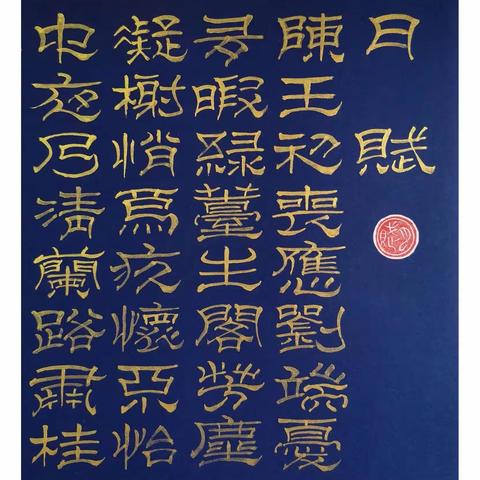 月賦
陳王初喪應劉端憂
多暇綠薹生閣芳塵
凝榭悄焉疚懷不怡
中夜清蘭路肅桂